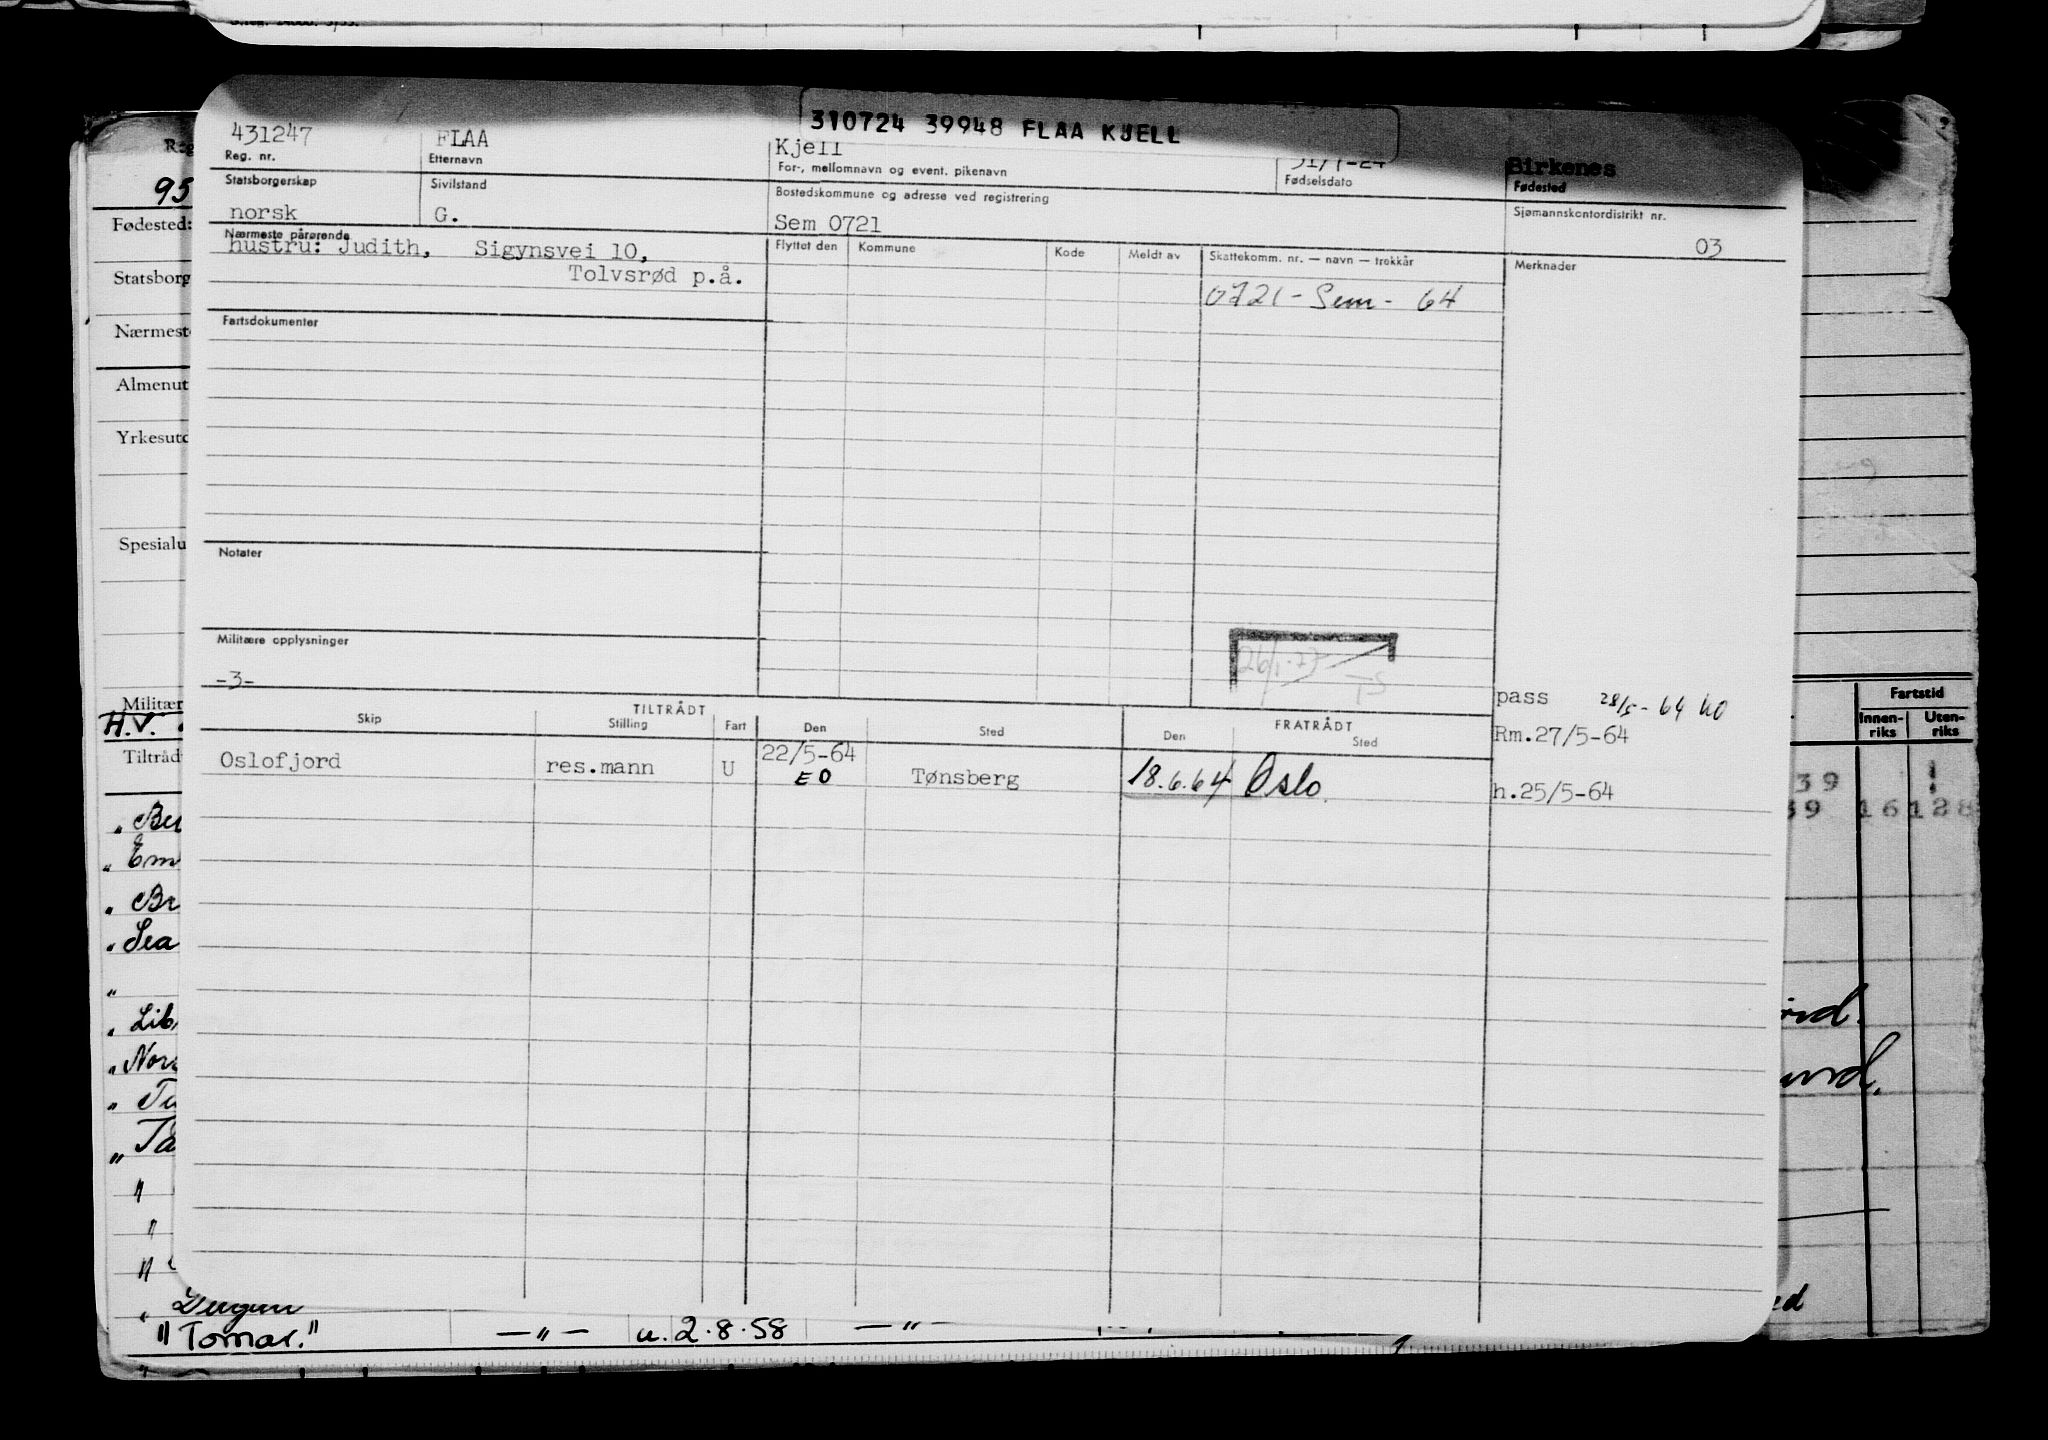 310724 39948 FLAA KJELL
431247 FLAA Kjell 31/7-24 Birkenes
Reg. nr. Etternavn For-, mellomnavn og event. pikenavn Fødselsdato Fødested
Statsborgerskap Sivilstand Bostedskommune og adresse ved registrering Sjømannskontordistrikt nr.
norsk G. Sem 0721 03
Nærmeste pårørende Flyttet den Kommune Kode Meldt av Skattekomm. nr. — navn — trekkår Merknader
hustru: Judith, Sigynsvei 10,
Tolvsrød p.å.
0721 - Sem - 64
Fartsdokumenter
Notater
Militære opplysninger
-3-
pass 28/5-64 
Rm.27/5-64
TILTRÅDT FRATRÅDT
Skip Stilling Fart Den Sted Den Sted
Oslofjord res.mann U 22/5-64 Tønsberg 18.6.64 Oslo
EO
h.25/5-64
95
Fødested:
Statsborg
Nærmest
Almenut
Yrkesutd
Spesialu
Militær
H.V.
Tiltråd
Fartstid
Innen-riks Uten-riks
39
39 16 128
" Ber
" Em
" Br
" Sea
"
" Lib
" Nor
" Tu
" Ta
"
"
"
"Tomar." —"— u. 2.8.58 —"—